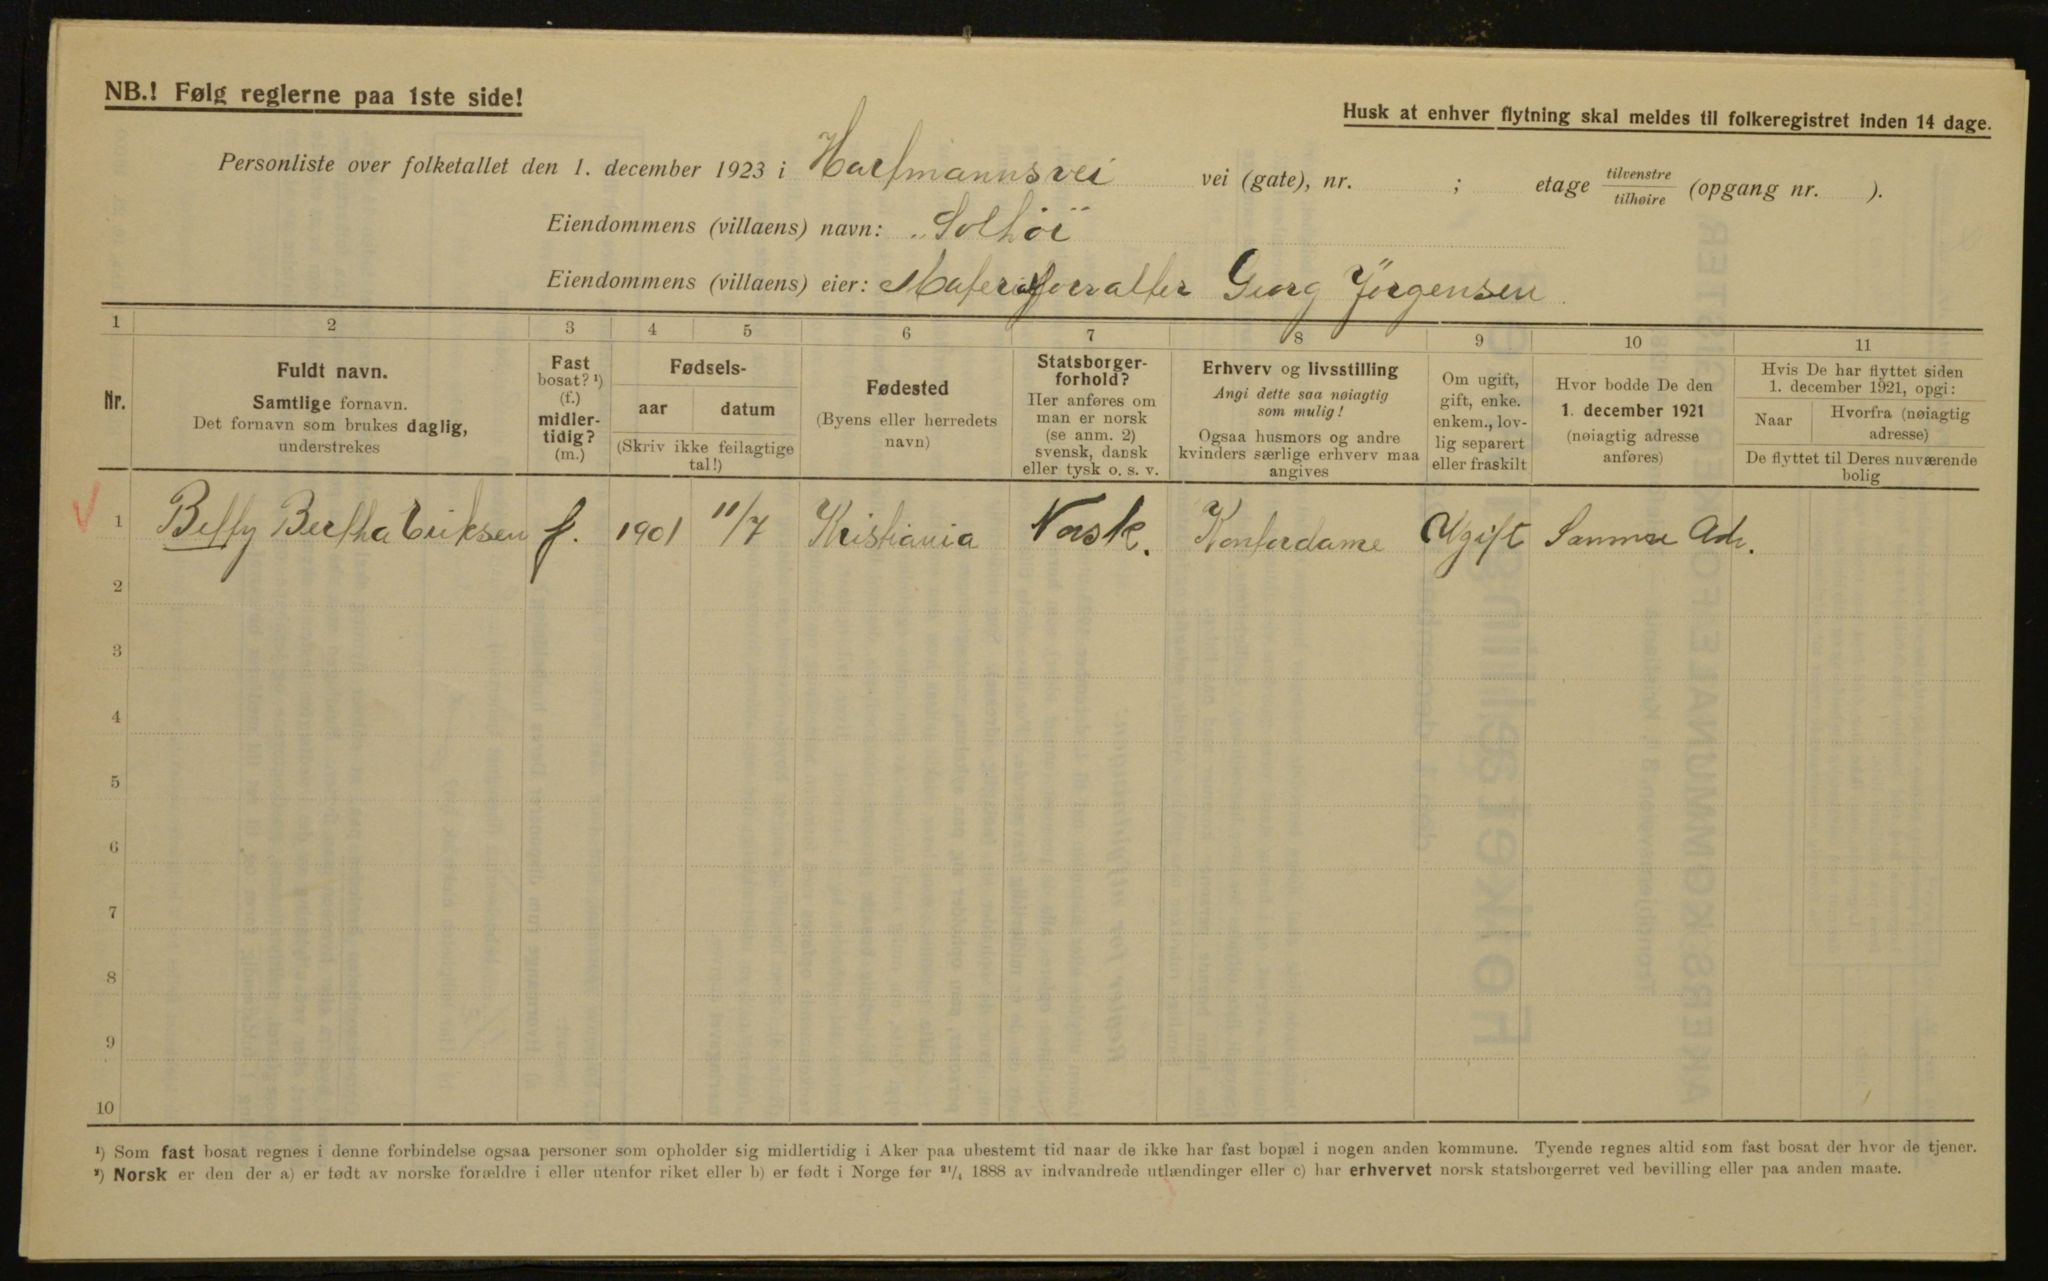 NB.! Følg reglerne paa 1ste side!
Husk at enhver flytning skal meldes til folkeregistret inden 14 dage.
Personliste over folketallet den 1. december 1923 i Hartmannsvei vei (gate), nr. ; etage tilvenstre tilhøire (opgang nr. ).
Eiendommens (villaens) navn: "Solhöi"
Eiendommens (villaens) eier: Materialforvalter Georg Jörgensen
1 2 3 4 5 6 7 8 9 10 11
Nr.
Fuldt navn.
Samtlige fornavn.
Det fornavn som brukes daglig,
understrekes
Fast
bosat? ¹)
(f.)
midler-
tidig?
(m.)
Fødsels-
aar datum
(Skriv ikke feilagtige
tal!)
Fødested
(Byens eller herredets
navn)
Statsborger-
forhold?
Her anføres om
man er norsk
(se anm. 2)
svensk, dansk
eller tysk o. s. v.
Erhverv og livsstilling
Angi dette saa nøiagtig
som mulig!
Ogsaa husmors og andre
kvinders særlige erhverv maa
angives
Om ugift,
gift, enke.
enkem., lov-
lig separert
eller fraskilt
Hvor bodde De den
1. december 1921
(nøiagtig adresse
anføres)
Hvis De har flyttet siden
1. december 1921, opgi:
Naar Hvorfra (nøiagtig
adresse)
De flyttet til Deres nuværende
bolig
1 Betty Bertha Eriksen f. 1901 11/7 Kristiania Norsk. Kontordame Ugift Samme Adr.
2
3
4
5
6
7
8
9
10
¹) Som fast bosat regnes i denne forbindelse ogsaa personer som opholder sig midlertidig i Aker paa ubestemt tid naar de ikke har fast bopæl i nogen anden kommune. Tyende regnes altid som fast bosat der hvor de tjener.
²) Norsk er den der a) er født av norske forældre i eller utenfor riket eller b) er født i Norge før ²¹/₄ 1888 av indvandrede utlændinger eller c) har erhvervet norsk statsborgerret ved bevilling eller paa anden maate.